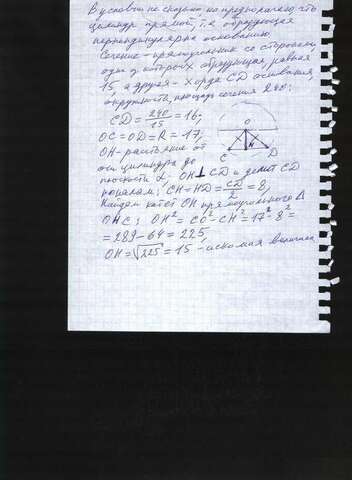 В условии не сказано, но предполагаю, что
цилиндр прямой, т.е. образующая
перпендикулярна основанию.
Сечение - прямоугольник со сторонами,
одна из которых образующая, равная
15, а другая - хорда CD основания,
окружности, площадь сечения 240:
CD = 240/15 = 16;
OC = OD = R = 17,
OH - расстояние от
оси цилиндра до
плоскости α, OH ⊥ CD и делит CD
пополам; CH = HD = CD/2 = 8,
Найдём катет OH прямоугольного Δ
OHC; OH² = CO² - CH² = 17² - 8² =
= 289 - 64 = 225,
OH = √225 = 15 - искомая величина
O
H
C
D